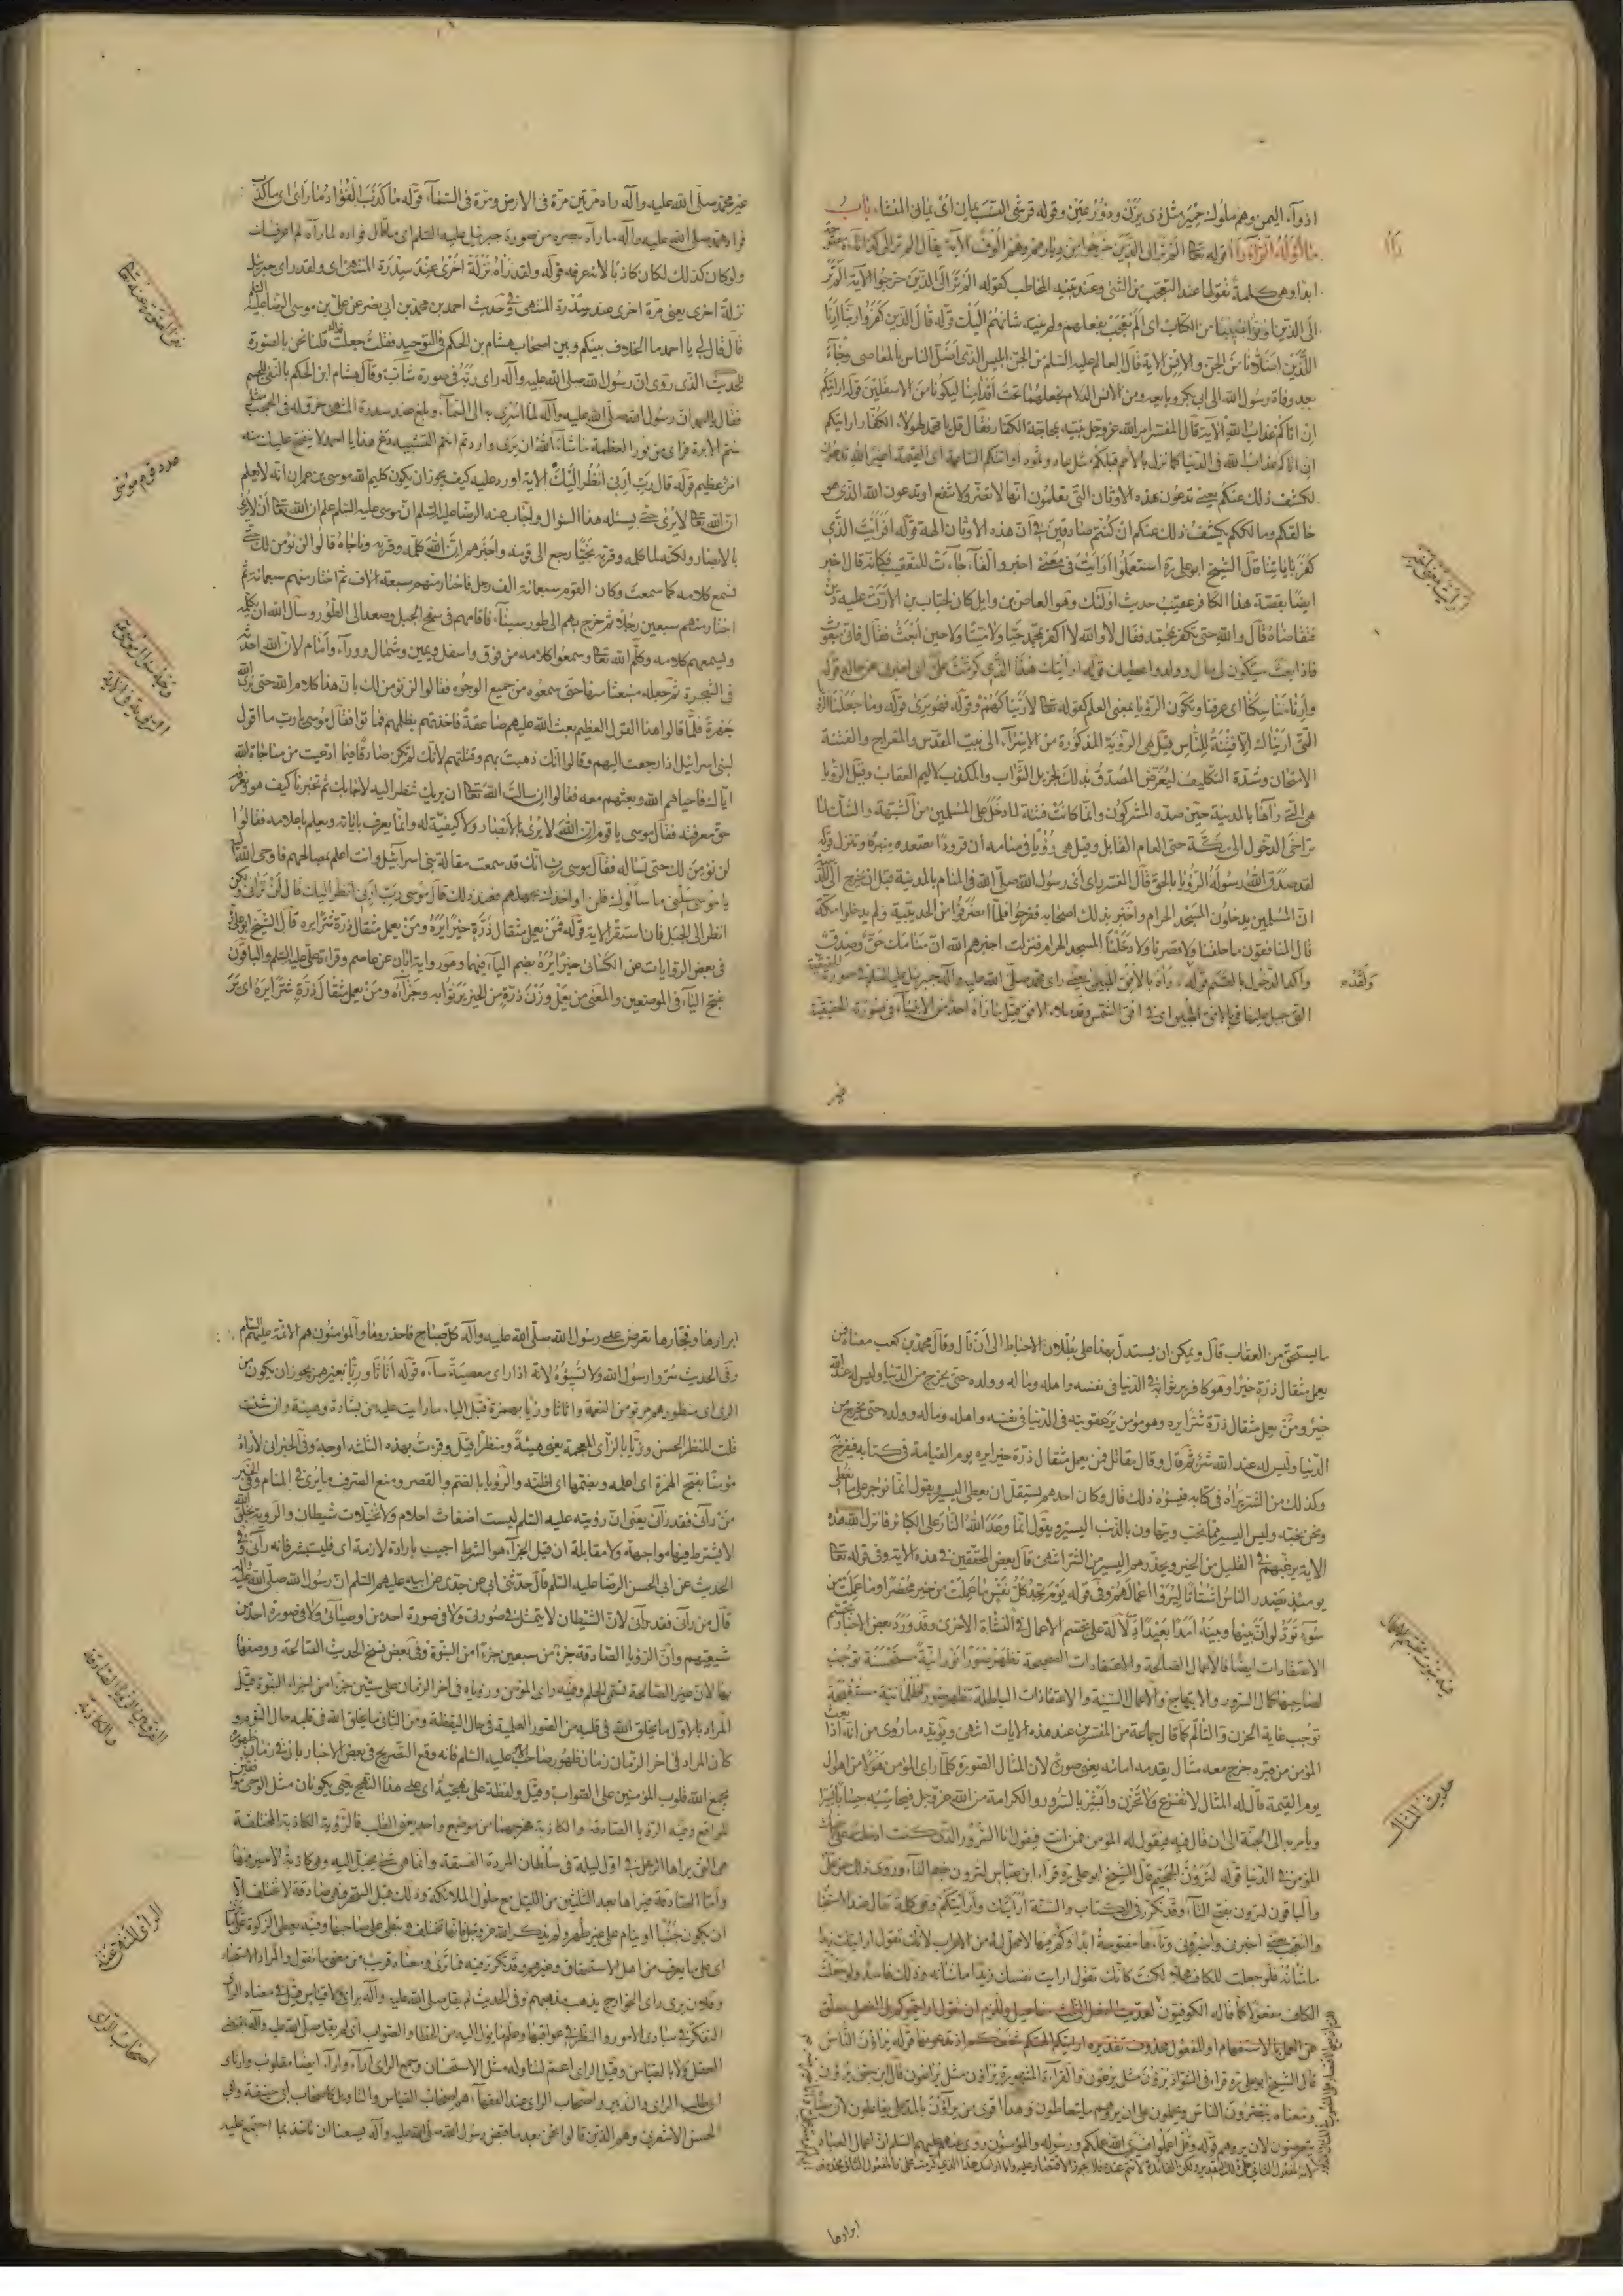 اذوآء اليمن وهم ملوك حِمْيَر مثل ذى يَزَن وذو رُعَيْن وقوله قرشى النسب يمانى اى يمانى المنشاء باب
ما اوّله الرآء رأا قوله تعا الم تر الى الذين خرجوا من ديارهم وهم الوف الآية يقال الم تر الى كذا
ابدا وهى كلمة تقولها عند التعجب من الشئ وعند تنبيه المخاطب كقوله الم تر الى الذين خرجوا الآية الم تر
الى الذين اوتوا نصيبا من الكتاب اى الم تعجب بفعلهم ولم ينته شانهم اليك قوله قال الذين كفروا ربنا ارنا
اللذين اضلانا من الجن والانس الاية قال العالم عليه السلم من الجن ابليس الذى اضل الناس بالمعاصى وجآء
بعد وفاة رسول الله الى ابى بكر وبايعه ومن الانس الدلام نجعلهما تحت اقدامنا ليكونا من الاسفلين قوله ارايتكم
ان اتاكم عذاب الله الاية قال المفسر امر الله عز وجل نبيه بمحاجة الكفار فقال قل يا محمد لهولاء الكفار ارايتكم
ان اتاكم عذاب الله فى الدنيا كما نزل بالامم قبلكم مثل عاد وثمود او اتتكم الساعة اى القيمة اغير الله تدعون
لكشف ذلك عنكم يعنى تدعون هذه الاوثان التى تعلمون انها لا تضر ولا تنفع او تدعون الله الذى هو
خالقكم ومالككم يكشف ذلك عنكم ان كنتم صادقين فى ان هذه الاوثان الهة قوله افرايت الذى
كفر باياتنا قال الشيخ ابو على ره استعملوا ارايت فى معنى اخبر والفآء جآءت للتعقيب فكانه قال اخبر
ايضا بقصة هذا الكافر عقيب حديث اولئك وهو العاص بن وايل كان لخباب بن الارت عليه دين
فتقاضاه قال والله حتى تكفر بمحمد فقال لا والله لا اكفر بمحمد حيا ولا ميتا ولا حين ابعث فقال فانى مبعوث
فاذا بعثت سيكون لى مال وولد واعطيك قوله ارايتك هذا الذى كرمت على اى اخبرنى عن حاله قوله
وارنا مناسكنا اى عرفنا وتكون الرؤيا بمعنى العلم كقوله تعا لاريناكهم وقوله فهو يرى قوله وما جعلنا الرؤيا
التى اريناك الا فتنة للناس قيل هى الروية المذكورة من الاسرآء الى بيت المقدس والمعراج والفتنة
الامتحان وشدة التكليف ليعرض المصدق بذلك لجزيل الثواب والمكذب لاليم العقاب وقيل الرؤيا
هى التى رآها بالمدينة حين صده المشركون وانما كانت فتنة لما دخل على المسلمين من الشبهة والشك لما
تراخى الدخول الى مكة حتى العام القابل وقيل هى رؤيا فى منامه ان قرودا تصعد منبره وتنزل قوله
لقد صدق الله رسوله الرؤيا بالحق قال المفسر اى ارى رسول الله صلى الله فى المنام بالمدينة قبل ان يخرج الى الحديبية
ان المسلمين يدخلون المسجد الحرام واخبر بذلك اصحابه ففرحوا فلما انصرفوا من الحديبية ولم يدخلوا مكة
قال المنافقون ما حلقنا ولا قصرنا ولا دخلنا المسجد الحرام فنزلت اخبرهم الله ان منامك حق وصدق
واكد الدخول بالقسم قوله رآه بالافق المبين يعنى راى محمد صلى الله عليه وآله جبرئيل عليه السلم فى صورته الحقيقية
التى جبل عليها فى الافق المبين اى فى افق الشمس وقد ملاء الافق قيل ما رآه احد من الانبيآء فى صورته الحقيقية
رأا
ارايت بمعنى اخبر
ولقد
غير
غير محمد صلى الله عليه وآله راه مرتين مرة فى الارض ومرة فى السمآء قوله ما كذب الفؤاد ما راى اى ما كذب
فواد محمد صلى الله عليه وآله ما رآه ببصره من صورة جبرئيل عليه السلم اى ما قال فواده لما رآه لم اعرفك
ولو كان كذلك لكان كاذبا لانه عرفه قوله ولقد رآه نزلة اخرى عند سدرة المنتهى اى ولقد راى جبرئيل
نزلة اخرى يعنى مرة اخرى عند سدرة المنتهى وفى حديث احمد بن محمد بن ابى نصر عن على بن موسى الرضا عليه السلم
قال قال لى يا احمد ما الخلاف بينكم وبين اصحاب هشام بن الحكم فى التوحيد فقلت جعلت فداك قلنا نحن بالصورة
للحديث الذى روى ان رسول الله صلى الله عليه وآله راى ربه فى صورة شاب وقال هشام ابن الحكم بالنفى للجسم
فقال يا احمد ان رسول الله صلى الله عليه وآله لما اسرى به الى السمآء وبلغ عند سدرة المنتهى خرق له فى الحجب مثل
سم الابرة فراى من نور العظمة ما شاء الله ان يرى واردتم انتم التشبيه دع هذا يا احمد لا ينفتح عليك منه
امر عظيم قوله قال رب ارنى انظر اليك الاية اورد عليه كيف يجوز ان يكون كليم الله موسى بن عمران انه لا يعلم
ان الله تعا لا يرى حتى يسئله هذا السؤال واجاب عنه الرضا عليه السلم ان موسى عليه السلم علم ان الله تعا لا يرى
بالابصار ولكنه لما كلمه وقربه نجيا رجع الى قومه واخبرهم ان الله كلمه وقربه وناجاه قالوا لن نؤمن لك حتى
نسمع كلامه كما سمعت وكان القوم سبعمائة الف رجل فاختار منهم سبعة الاف ثم اختار منهم سبعمائة ثم
اختار منهم سبعين رجلا ثم خرج بهم الى طور سيناء فاقامهم فى سفح الجبل وصعد الى الطور وسأل الله ان يكلمه
ويسمعهم كلامه وكلم الله تعا وسمعوا كلامه من فوق واسفل ويمين وشمال وورآء وامام لان الله احدثه
فى الشجرة ثم جعله منبعثا منها حتى سمعوه من جميع الوجوه فقالوا لن نؤمن لك بان هذا كلام الله حتى نرى الله
جهرة فلما قالوا هذا القول العظيم بعث الله عليهم صاعقة فاخذتهم بظلمهم فماتوا فقال موسى يا رب ما اقول
لبنى اسرائيل اذا رجعت اليهم وقالوا انك ذهبت بهم وقتلتهم لانك لم تكن صادقا فيما ادعيت من مناجاة الله
اياك فاحياهم الله وبعثهم معه فقالوا ان سالت الله تعا ان يريك تنظر اليه لاجابك ثم تخبرنا كيف هو ونعرفه
حق معرفته فقال موسى يا قوم ان الله لا يرى بالابصار ولا كيفية له وانما يعرف باياته ويعلم باعلامه فقالوا
لن نؤمن لك حتى تساله فقال موسى رب انك قد سمعت مقالة بنى اسرائيل وانت اعلم بصالحهم فاوحى الله تعا
يا موسى سلنى ما سألوك فلن اواخذك بجهلهم فعند ذلك قال موسى رب ارنى انظر اليك قال لن ترانى ولكن
انظر الى الجبل فان استقر الاية قوله فمن يعمل مثقال ذرة خيرا يره ومن يعمل مثقال ذرة شرا يره قال الشيخ ابو على
فى بعض الروايات عن الكسائى خيرا يره بضم الياء فيهما وهو رواية ابان عن عاصم وقراءة على عليه السلم والباقون
بفتح اليآء فى الموضعين والمعنى من يعمل وزن ذرة من الخير ير ثوابه وجزآءه ومن يعمل مثقال ذرة شرا يره اى ير
عدد قوم موسى
ما يستحق من العقاب قال ويمكن ان يستدل بهذا على بطلان الاحباط الى ان قال وقال محمد بن كعب معناه فمن
يعمل مثقال ذرة خيرا وهو كافر ير ثوابه فى الدنيا فى نفسه واهله وماله وولده حتى يخرج من الدنيا وليس له عند الله
خير ومن يعمل مثقال ذرة شرا يره وهو مؤمن ير عقوبته فى الدنيا فى نفسه واهله وماله وولده حتى يخرج من
الدنيا وليس له عند الله شر ثم قال وقال مقاتل فمن يعمل مثقال ذرة خيرا يره يوم القيامة فى كتابه فيفرح
وكذلك من الشر يراه فى كتابه فيسؤه ذلك قال وكان احدهم يستقل ان يعطى اليسير ويقول انما نوجر على ما نعطى
ونحن نحبه وليس اليسير مما نحب ويتهاون بالذنب اليسير ويقول انما وعد الله النار على الكبائر فانزل الله هذه
الاية يرغبهم فى القليل من الخير ويحذرهم اليسير من الشر انتهى قال بعض المحققين فى هذه الاية وفى قوله تعا
يومئذ يصدر الناس اشتاتا ليروا اعمالهم وفى قوله يوم تجد كل نفس ما عملت من خير محضرا وما عملت من
سوء تود لو ان بينها وبينه امدا بعيدا دلالة على تجسم الاعمال فى النشاة الاخرى وقد ورد بعض الاخبار بتجسم
الاعتقادات ايضا فالاعمال الصالحة والاعتقادات الصحيحة تظهر صورا نورانية مستحسنة توجب
لصاحبها كمال السرور والابتهاج والاعمال السيئة والاعتقادات الباطلة تظهر صورا ظلمانية مستقبحة
توجب غاية الحزن والتألم كما قال جماعة من المفسرين عند هذه الايات انتهى ويؤيده ما روى من انه اذا بعث
المؤمن من قبره خرج معه مثال يقدمه امامه يعنى صورة لان المثال الصورة كلما راى المؤمن هولا من اهوال
يوم القيمة قال له المثال لا تفزع ولا تحزن وابشر بالسرور والكرامة من الله عز وجل فيحاسبه حسابا يسيرا
ويأمر به الى الجنة الى ان قال فيه فيقول له المؤمن فمن انت فيقول انا السرور الذى كنت ادخلته على اخيك
المؤمن فى الدنيا قوله لترون الجحيم قال الشيخ ابو على ره قراء ابن عباس لترون بضم التآء وروى ذلك عن على
والباقون لترون بفتح التآء وقد تكرر فى الكتاب والسنة ارايتك وارايتكم وهى كلمة تقال عند الاستخبار
والتعجب بمعنى اخبرنى واخبرونى وتآءها مفتوحة ابدا
ما شانه فلو جعلت للكاف محلا لكنت كانك تقول ارايت نفسك زيدا ما شانه وذلك فاسد ولو جعلت
الكاف مفعولا كما قاله الكوفيون لعديت الفعل الى ثلث مفاعيل وللزم ان تقول ارايتموكم بل الفعل معلق
قال الشيخ ابو على ره قراء فى الشواذ يرؤن مثل يرعون والقراءة المشهورة يراؤن مثل يراعون قال ابن جنى يرؤن
حديث المثال
ابرارها
ابرارها وفجارها تعرض على رسول الله صلى الله عليه وآله كل صباح فاحذروها والمؤمنون هم الائمة عليهم السلم
وفى الحديث سروا رسول الله ولا تسؤوه لانه اذا راى معصية سآءه قوله اثاثا ورئيا بغير همز يجوز ان يكون من
الرى اى منظورهم مرتو من النعمة واثاثا ورئيا بهمزة قبل اليآء ما رايت عليه من شارة وهيئة وان شئت
قلت المنظر الحسن وزيا بالزاى المعجمة يعنى هيئة ومنظرا قيل وقرئت بهذه الثلثة اوجه وفى الخبر انى لاراه
مؤمنا بفتح الهمزة اى اعلمه وبضمها اى اظنه والرؤيا بالضم والقصر ومنع الصرف ما يرى فى المنام وفى الخبر
من رآنى فقد رآنى يعنى ان رؤيته عليه السلم ليست اضغاث احلام ولا تخيلات شيطان والروية بخلق الله
لا يشترط فيها مواجهة ولا مقابلة ان قيل الجزآء هو الشرط اجيب بارادة لازمه اى فليستبشر فانه رآنى وفى
الحديث عن ابى الحسن الرضا عليه السلم قال حدثنى ابى عن جدى عن ابيه عليهم السلم ان رسول الله صلى الله عليه وآله
قال من رآنى فقد رآنى لان الشيطان لا يتمثل فى صورتى ولا فى صورة احد من اوصيآئى ولا فى صورة احد من
شيعتهم وان الرؤيا الصادقة جزء من سبعين جزءا من النبوة وفى بعض نسخ الحديث الصالحة ووصفها
بها لان غير الصالحة تسمى بالحلم وفيه راى المؤمن ورؤياه فى اخر الزمان على ستين جزءا من اجزاء النبوة قيل
المراد بالاول ما يخلق الله فى قلبه من الصور العلمية فى حال اليقظة ومن الثانى ما يخلق الله فى قلبه حال النوم و
كان المراد فى اخر الزمان زمان ظهور صاحب الامر عليه السلم فانه وقع التصريح فى بعض الاخبار بان فى زمان ظهوره
يجمع الله قلوب المؤمنين على الصواب وقيل ولفظة على نهجية اى على هذا النهج
وفيه الرؤيا الصادقة والكاذبة مخرجهما من موضع واحد يعنى القلب فالرؤية الكاذبة المختلفة
هى التى يراها الرجل فى اول ليلة فى سلطان المردة الفسقة وانما هى شئ يخيل اليه وهى كاذبة لا خير فيها
واما الصادقة فيراها بعد الثلثين من الليل مع حلول الملائكة وذلك قبل السحر فهى صادقة لا تختلف الا
ان يكون جنبا او ينام على غير طهر ولم يذكر الله عز وجل فانها تختلف وتبطى على صاحبها وفيه يعطى الزكوة على ما
وفلان يرى راى الخوارج يذهب مذهبهم وفى الحديث لم يقل صلى الله عليه وآله براى ولا قياس قيل فى معناه الراى
التفكر فى مبادى الامور والنظر فى عواقبها وعلم ما يؤل اليه من الخطاء والصواب
العقل ولا بالقياس وقيل الراى اعم لتناوله مثل الاستحسان وجمع الراى آرآء وارآء ايضا مقلوب وارتاى
اى طلب الراى والتدبير واصحاب الراى عند الفقهاء هم اصحاب القياس والتاويل كاصحاب ابى حنيفة وابى
الحسن الاشعرى وهم الذين قالوا نحن بعد ما قبض رسول الله صلى الله عليه وآله يسعنا ان ناخذ بما اجتمع عليه
الفرق بين الرؤيا الصادقة
والكاذبة
اصحاب الراى